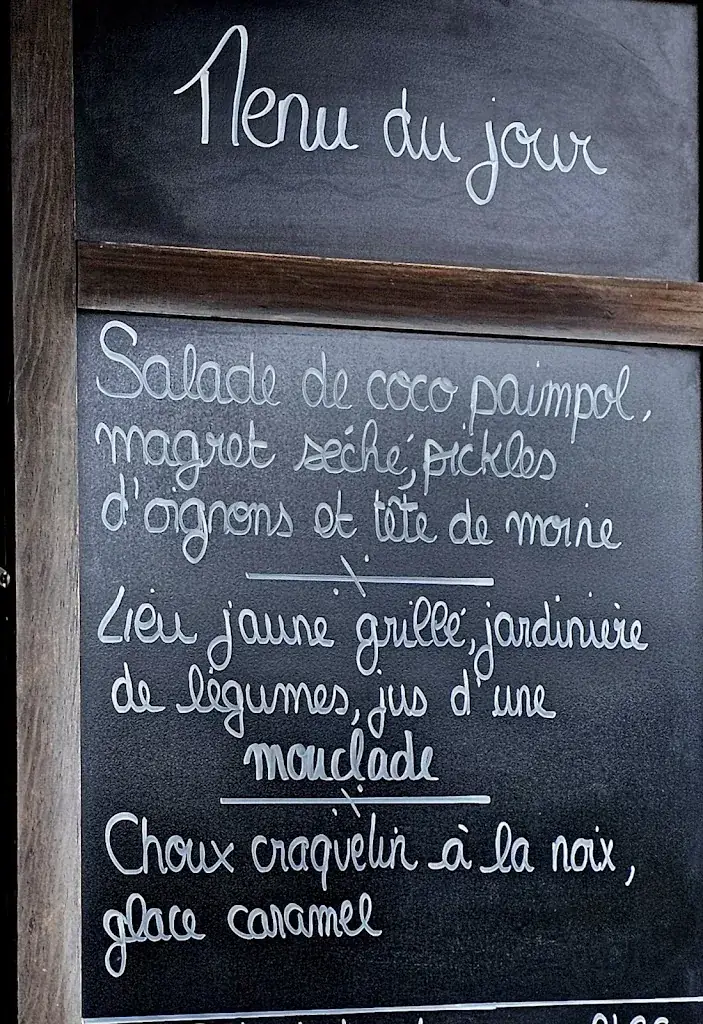 Menu du jour
Salade de coco paimpol,
magret séché, pickles
d'oignons et tête de moine
Lieu jaune grillé, jardinière
de légumes, jus d'une
mouclade
Choux craquelin à la noix,
glace caramel